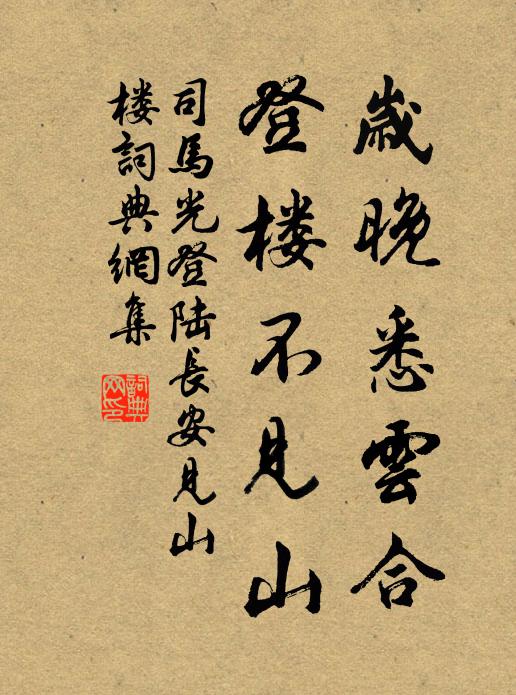 歲晚悉雲合
登楼不見山
司馬光登陆長安見山
楼詞典網集
詞典
网印